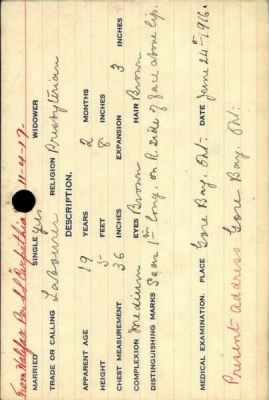 From Halifax Per SS Carpathia 11-4-17-
MARRIED SINGLE yes WIDOWER
TRADE OR CALLING Labourer RELIGION Presbyterian
DESCRIPTION.
APPARENT AGE 19 YEARS 2 MONTHS
HEIGHT 5 FEET 8 INCHES
CHEST MEASUREMENT 36 INCHES EXPANSION 3 INCHES
COMPLEXION Medium EYES Brown HAIR Brown
DISTINGUISHING MARKS Scar 1" long, on R. side of face above lip.
MEDICAL EXAMINATION. PLACE Gore Bay, Ont. DATE June 24th 1916.
Present Address Gore Bay, Ont.